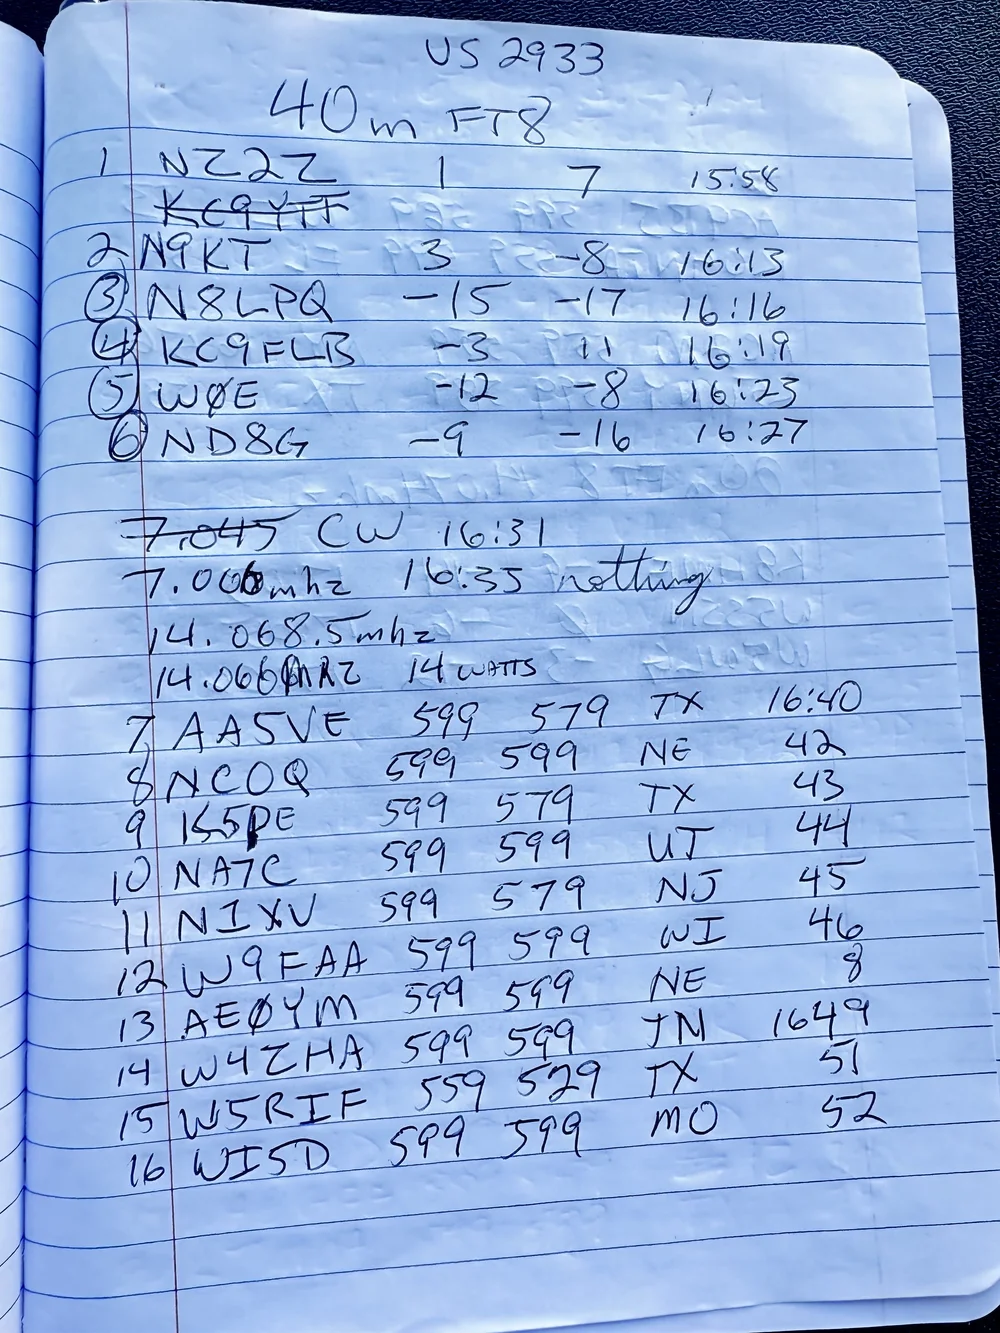 US 2933
40m FT8
1 NZ2Z 1 7 15:58
KC9YTF
2 N9KT 3 -8 16:13
3 N8LPQ -15 -17 16:16
4 KC9FLB -3 11 16:19
5 WØE -12 -8 16:23
6 ND8G -9 -16 16:27
7.045 CW 16:31
7.006mhz 16:35 nothing
14.068.5mhz
14.066mhz 14 WATTS
7 AA5VE 599 579 TX 16:40
8 NC0Q 599 599 NE 42
9 K5PE 599 579 TX 43
10 NA7C 599 599 UT 44
11 N1XV 599 579 NJ 45
12 W9FAA 599 599 WI 46
13 AEØYM 599 599 NE 8
14 W4ZHA 599 599 TN 1649
15 W5RIF 559 529 TX 51
16 WI5D 599 599 MO 52